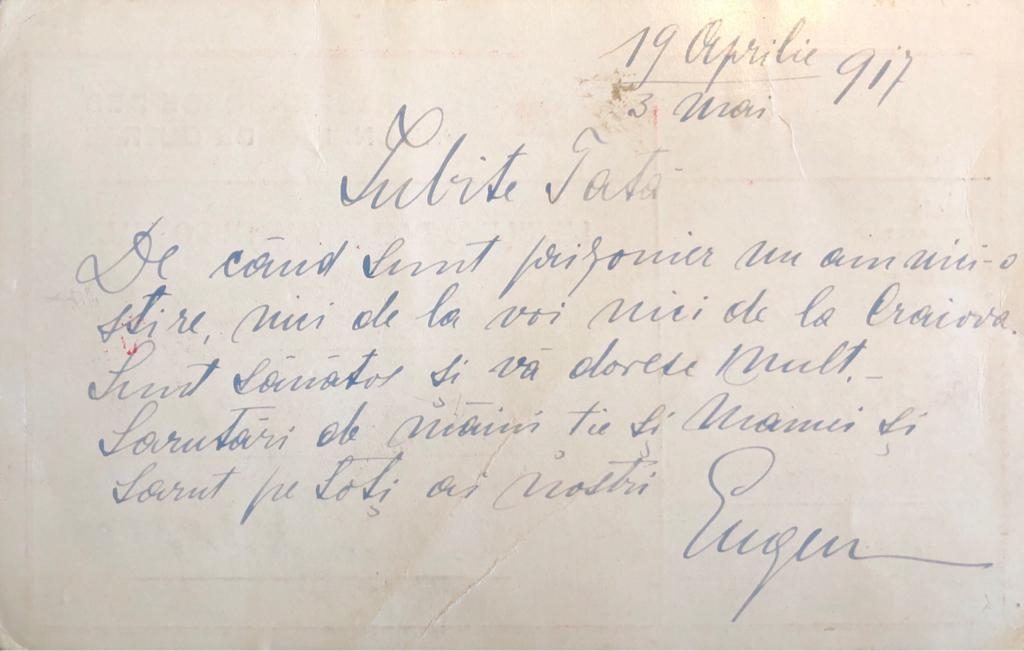 19 Aprilie 917
3 Mai
Iubite Tată
De când sunt prizonier nu am nici-o
știre, nici de la voi nici de la Craiova.
Sunt sănătos și vă doresc mult.-
Sarutări de mâini ție și Mamei și
sarut pe toți ai noștri
Eugen